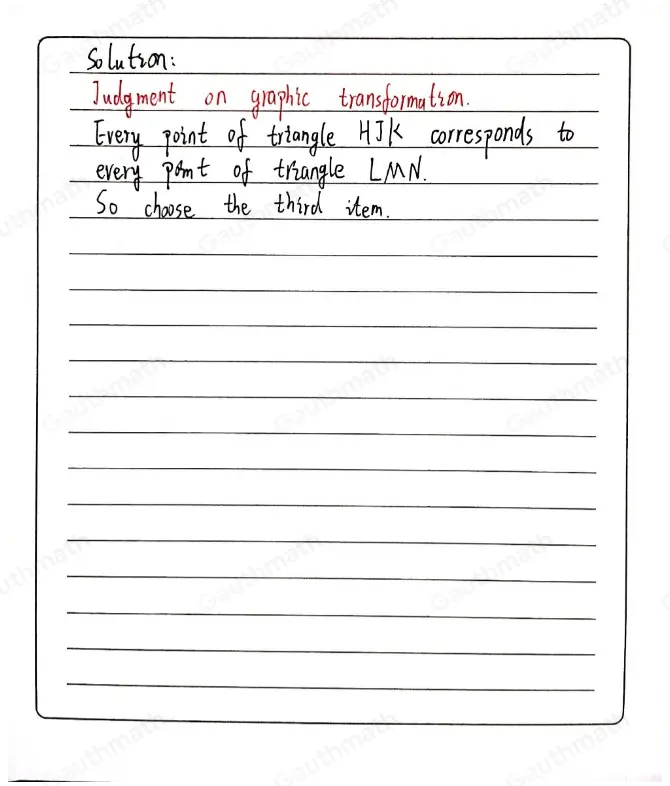 Solution:
Judgment on graphic transformation.
Every point of triangle HJK corresponds to
every point of triangle LMN.
So choose the third item.